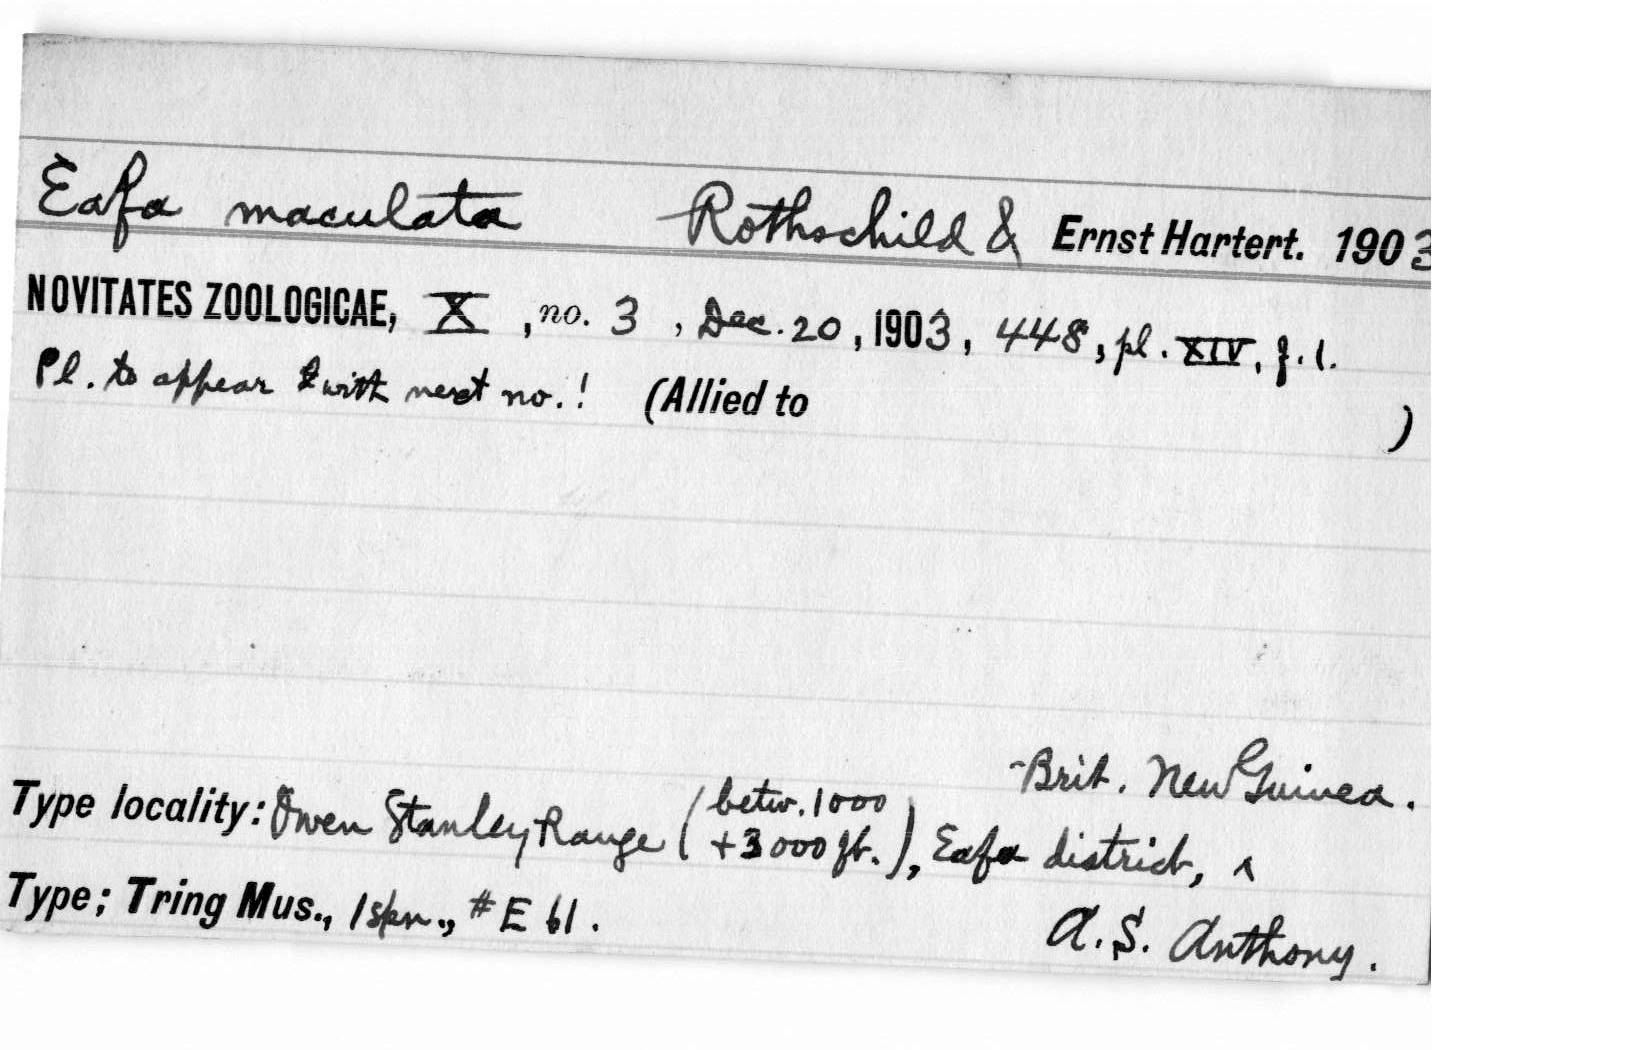 Eafa maculata Rothschild & Ernst Hartert. 1903
NOVITATES ZOOLOGICAE, X, no. 3, Dec. 20, 1903, 448, pl. XIV, f. 1.
Pl. to appear with next no.! (Allied to )
-Brit. New Guinea.
Type locality: Owen Stanley Range (betw. 1000 + 3000 ft.), Eafa district, ^
Type; Tring Mus., 1 spn., # E 61.
A. S. Anthony.